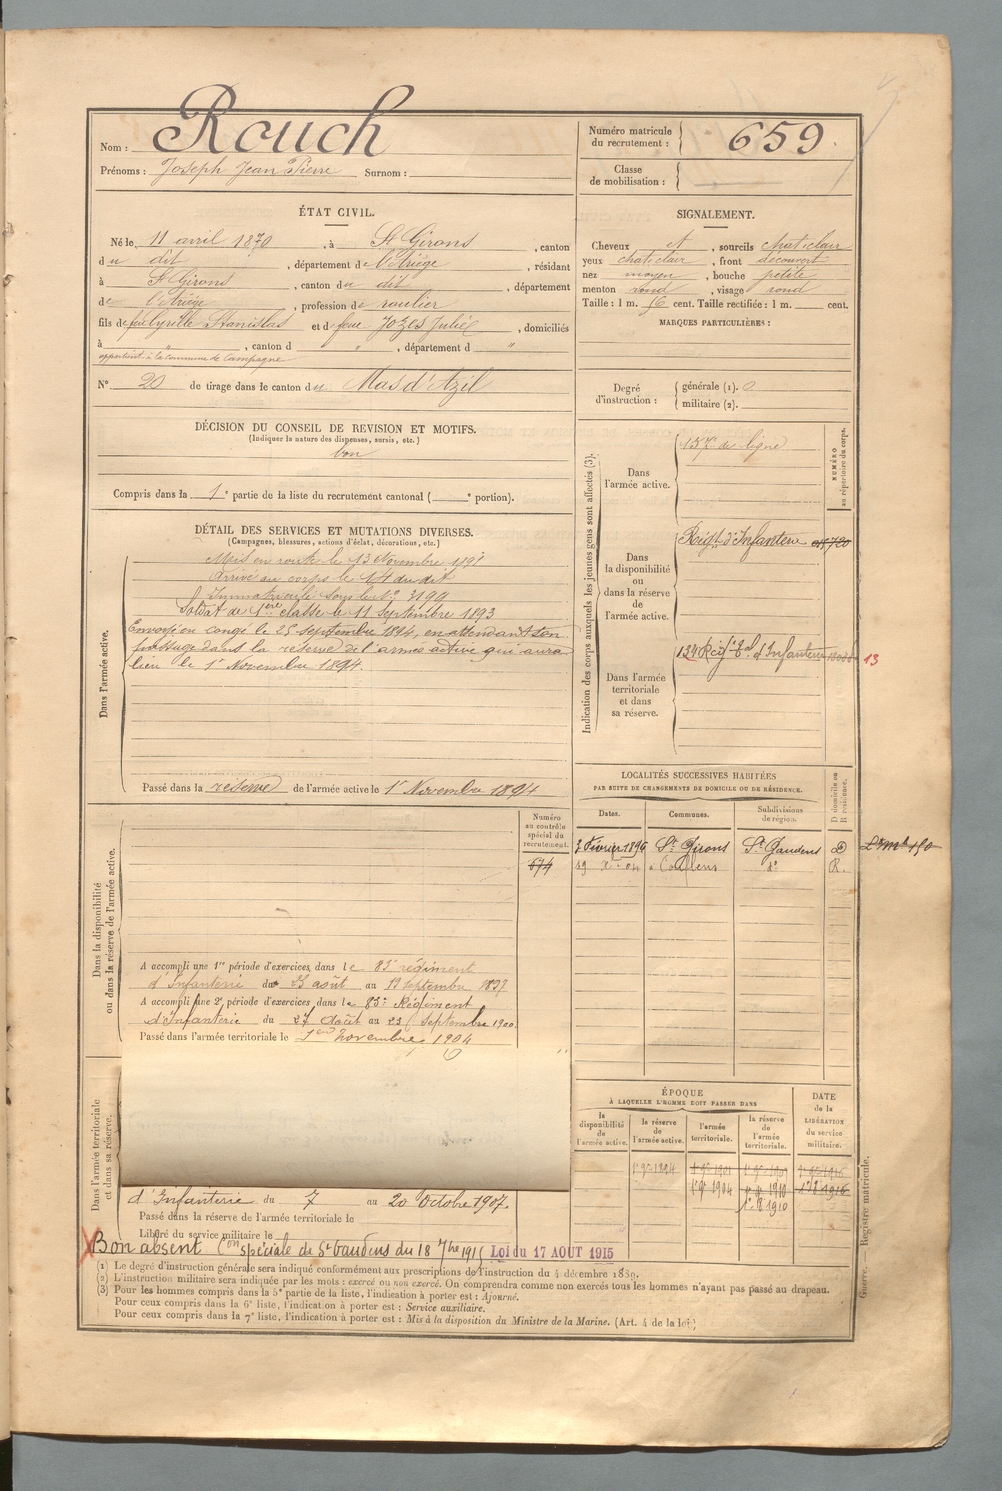 Nom : Rouch
Prénoms : Joseph Jean Pierre Surnom :
Numéro matricule du recrutement : 659
Classe de mobilisation :
ÉTAT CIVIL.
Né le 11 avril 1870, à St Girons, canton
du dit, département de l'Ariége, résidant
à St Girons, canton du dit, département
de l'Ariége, profession de roulier
fils de feu Cyrille Stanislas et de feue Jozes Julie, domiciliés
à " , canton d " , département d "
appartient à la commune de Campagne
N° 20 de tirage dans le canton du Mas d'Azil
SIGNALEMENT.
Cheveux et, sourcils chat. clair
yeux chat. clair, front découvert
nez moyen, bouche petite
menton rond, visage rond
Taille : 1 m. 76 cent. Taille rectifiée : 1 m. cent.
MARQUES PARTICULIÈRES :
Degré d'instruction : générale (1). 0
militaire (2).
DÉCISION DU CONSEIL DE REVISION ET MOTIFS.
(Indiquer la nature des dispenses, sursis, etc.)
bon
Compris dans la 1e partie de la liste du recrutement cantonal ( e portion).
DÉTAIL DES SERVICES ET MUTATIONS DIVERSES.
(Campagnes, blessures, actions d'éclat, décorations, etc.)
Dans l'armée active.
Mis en route le 13 Novembre 1891
Arrivé au corps le 14 du dit
Immatriculé sous le N° 3199
Soldat de 1ère classe le 11 Septembre 1893
Envoyé en congé le 25 septembre 1894, en attendant son
passage dans la réserve de l'armée active qui aura
lieu le 1er Novembre 1894.
Passé dans la réserve de l'armée active le 1er Novembre 1894
Indication des corps auxquels les jeunes gens sont affectés (3).
NUMÉRO au répertoire du corps.
Dans l'armée active.
157e de ligne
Dans la disponibilité ou dans la réserve de l'armée active.
Régt d'Infanterie
Dans l'armée territoriale et dans sa réserve.
134 Régt Tal d'Infanterie 13
LOCALITÉS SUCCESSIVES HABITÉES
PAR SUITE DE CHANGEMENTS DE DOMICILE OU DE RÉSIDENCE.
Dates. Communes. Subdivisions de région. D domicile ou R résidence.
3 Février 1896 St Girons St Gaudens D
19 Xbre 04 Couflens do R.
Dans la disponibilité ou dans la réserve de l'armée active.
Numéro au contrôle spécial du recrutement.
674
A accompli une 1re période d'exercices, dans le 83e régiment
d'Infanterie du 23 août au 19 septembre 1897
A accompli une 2e période d'exercices, dans le 83e Régiment
d'Infanterie du 27 Août au 23 Septembre 1900.
Passé dans l'armée territoriale le 1er Novembre 1904
Dans l'armée territoriale et dans sa réserve.
d'Infanterie du 7 au 20 Octobre 1907.
Passé dans la réserve de l'armée territoriale le
Libéré du service militaire le
ÉPOQUE
À LAQUELLE L'HOMME DOIT PASSER DANS
la disponibilité de l'armée active.
la réserve de l'armée active.
l'armée territoriale.
la réserve de l'armée territoriale.
DATE de la LIBÉRATION du service militaire.
1er 9bre 1894
1er 9bre 1904
1er 8bre 1910
Registre matricule.
Bon absent Con spéciale de St Gaudens du 18 7bre 1915 Loi du 17 AOUT 1915
(1) Le degré d'instruction générale sera indiqué conformément aux prescriptions de l'instruction du 4 décembre 1889.
(2) L'instruction militaire sera indiquée par les mots : exercé ou non exercé. On comprendra comme non exercés tous les hommes n'ayant pas passé au drapeau.
(3) Pour les hommes compris dans la 5e partie de la liste, l'indication à porter est : Ajourné.
Pour ceux compris dans la 6e liste, l'indication à porter est : Service auxiliaire.
Pour ceux compris dans la 7e liste, l'indication à porter est : Mis à la disposition du Ministre de la Marine. (Art. 4 de la loi.)